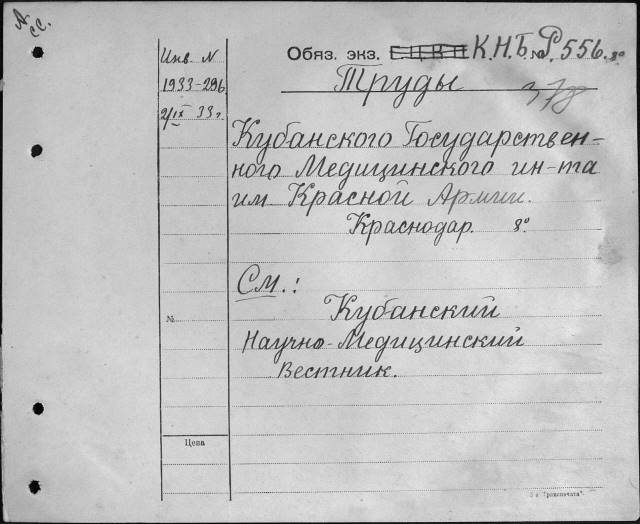 А
сс.
Инв. N
1933-296
2/IX 33г.
Обяз. экз. Е.Ц.К.П К.Н.Б. № Р.556. 8°
Труды
378
Кубанского Государствен-
ного Медицинского ин-та
им Красной Армии.
Краснодар. 8°
См.:
Кубанский
№
Научно-Медицинский
Вестник.
Цена